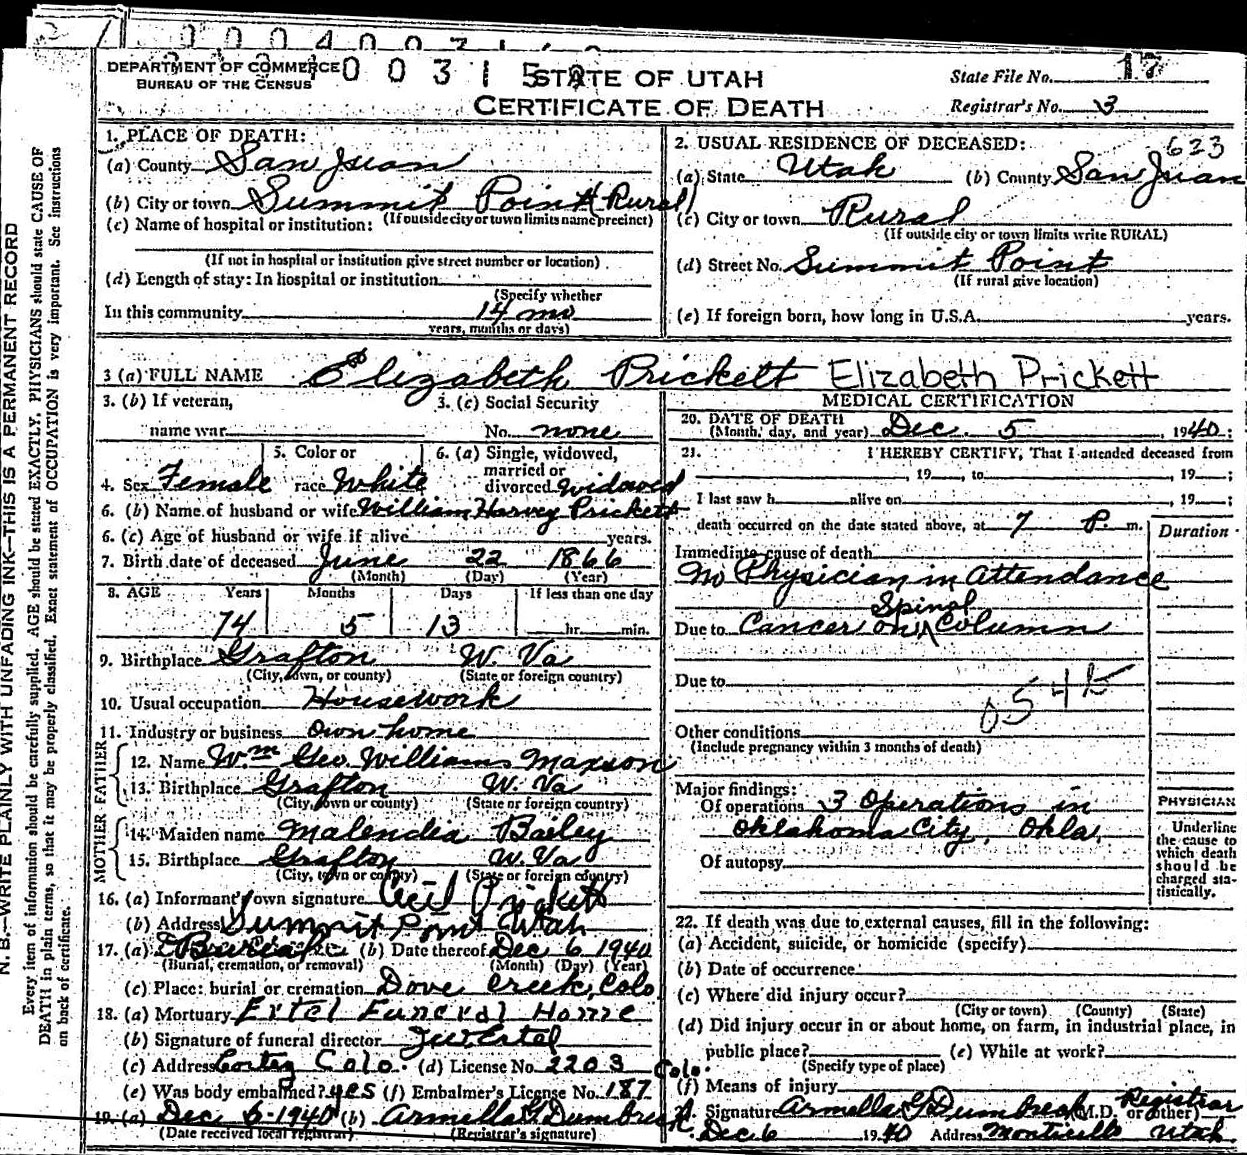 DEPARTMENT OF COMMERCE
BUREAU OF THE CENSUS
STATE OF UTAH
CERTIFICATE OF DEATH
State File No. 17
Registrar's No. 3
N. B.—WRITE PLAINLY WITH UNFADING INK—THIS IS A PERMANENT RECORD
Every item of information should be carefully supplied. AGE should be stated EXACTLY. PHYSICIANS should state CAUSE OF
DEATH in plain terms, so that it may be properly classified. Exact statement of OCCUPATION is very important. See instructions
on back of certificate.
1. PLACE OF DEATH:
(a) County San Juan
(b) City or town Summit Point (Rural)
(If outside city or town limits name precinct)
(c) Name of hospital or institution:
(If not in hospital or institution give street number or location)
(d) Length of stay: In hospital or institution
(Specify whether
In this community 14 mo
years, months or days)
2. USUAL RESIDENCE OF DECEASED: 623
(a) State Utah (b) County San Juan
(c) City or town Rural
(If outside city or town limits write RURAL)
(d) Street No. Summit Point
(If rural give location)
(e) If foreign born, how long in U.S.A. years.
3 (a) FULL NAME Elizabeth Prickett Elizabeth Prickett
3. (b) If veteran,
name war
3. (c) Social Security
No. none
4. Sex Female
5. Color or
race White
6. (a) Single, widowed,
married or
divorced Widowed
6. (b) Name of husband or wife William Harvey Prickett
6. (c) Age of husband or wife if alive years.
7. Birth date of deceased June 22 1866
(Month) (Day) (Year)
8. AGE Years Months Days If less than one day
74 5 13 hr. min.
9. Birthplace Grafton W. Va
(City, town, or county) (State or foreign country)
10. Usual occupation Housework
11. Industry or business Own home
FATHER
12. Name Wm Geo. Williams Maxson
13. Birthplace Grafton W. Va
(City, town or county) (State or foreign country)
MOTHER
14. Maiden name Malendia Bailey
15. Birthplace Grafton W. Va
(City, town or county) (State or foreign country)
16. (a) Informant's own signature Cecil Prickett
(b) Address Summit Point Utah
17. (a) Burial (b) Date thereof Dec 6 1940
(Burial, cremation, or removal) (Month) (Day) (Year)
(c) Place: burial or cremation Dove Creek, Colo
18. (a) Mortuary Ertel Funeral Home
(b) Signature of funeral director JW Ertel
(c) Address Cortez Colo. (d) License No. 2203 Colo.
(e) Was body embalmed? yes (f) Embalmer's License No. 187
19. (a) Dec 6-1940 (b) Armella G Dumbreck
(Date received local registrar) (Registrar's signature)
MEDICAL CERTIFICATION
20. DATE OF DEATH
(Month, day, and year) Dec. 5, 1940;
21. I HEREBY CERTIFY, That I attended deceased from
, 19 , to , 19 ;
I last saw h alive on , 19 ;
death occurred on the date stated above, at 7 P. m.
Duration
Immediate cause of death
No Physician in Attendance
Due to Cancer on Spinal Column
Due to
Other conditions
(Include pregnancy within 3 months of death)
Major findings:
Of operations 3 Operations in
Oklahoma City, Okla.
Of autopsy
PHYSICIAN
Underline
the cause to
which death
should be
charged sta-
tistically.
22. If death was due to external causes, fill in the following:
(a) Accident, suicide, or homicide (specify)
(b) Date of occurrence
(c) Where did injury occur?
(City or town) (County) (State)
(d) Did injury occur in or about home, on farm, in industrial place, in
public place? (e) While at work?
(Specify type of place)
(f) Means of injury
Signature Armella G Dumbreck (M.D. or other) Registrar
Dec. 6 1940 Address Monticello Utah